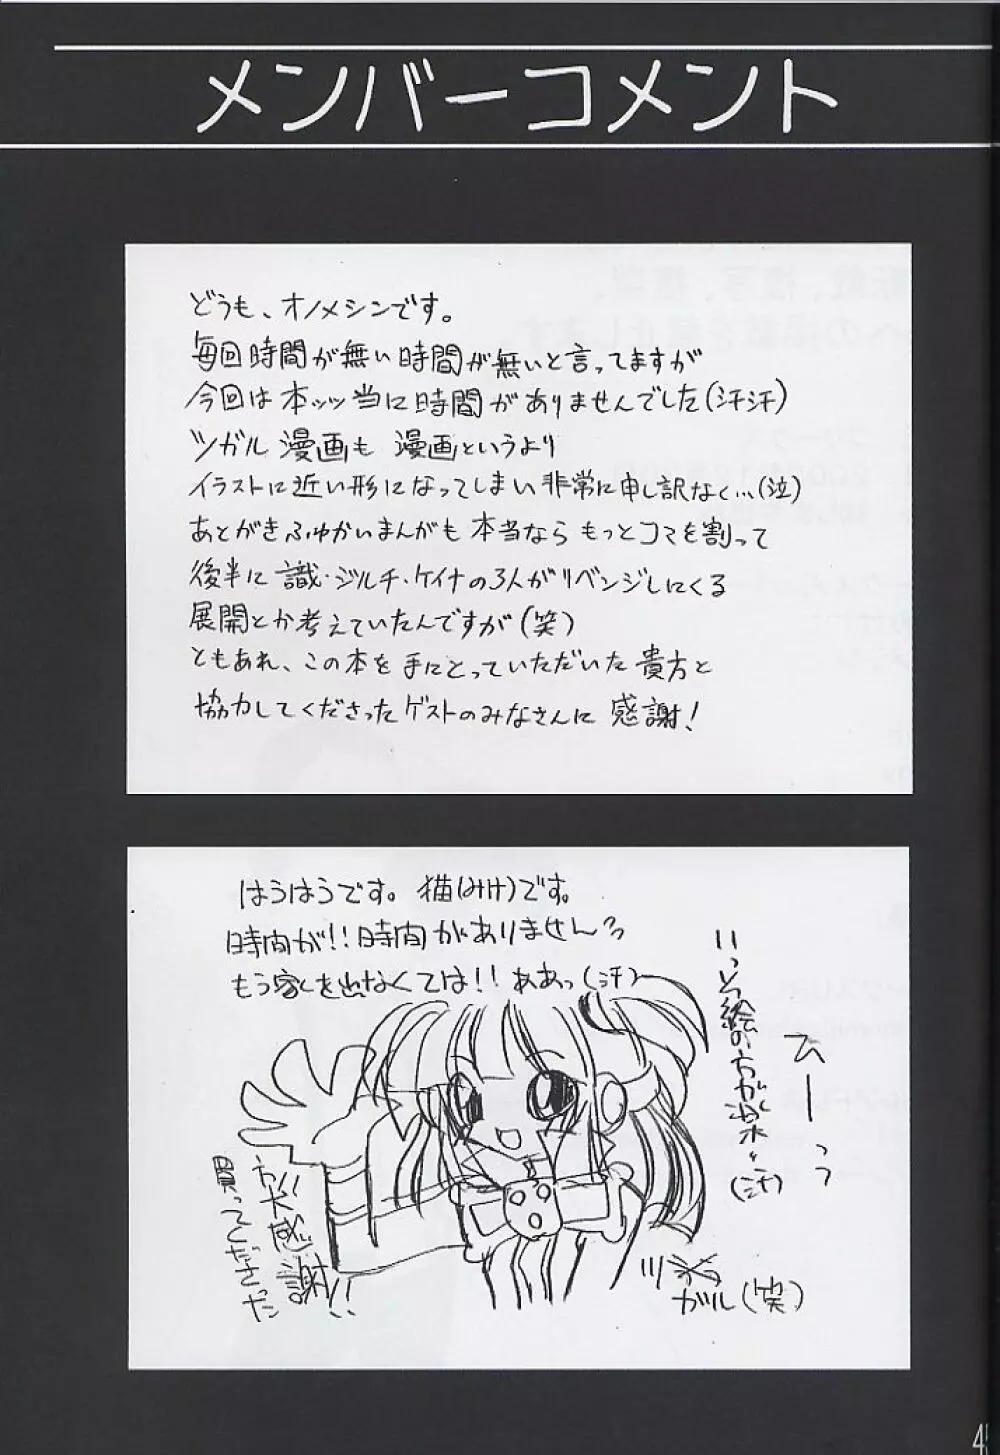 メンバーコメント
どうも、オノメシンです。
毎回時間が無い時間が無いと言ってますが
今回は本ッッ当に時間がありませんでした(汗汗)
ツガル漫画も漫画というより
イラストに近い形になってしまい非常に申し訳なく…(泣)
あとがきふゆかいまんがも本当ならもっとコマを割って
後半に識・ジルチ・ケイナの3人がリベンジしにくる
展開とか考えていたんですが(笑)
ともあれ、この本を手にとっていただいた貴方と
協力してくださったゲストのみなさんに感謝!
はうはうです。猫(みけ)です。
時間が!!時間がありません
もう家を出なくては!!ああっ(汗)
いっそ絵の方が楽
(汗)
ひーっっ
買ってくださった
方に大感謝!!
ツ
ガル(笑)
4